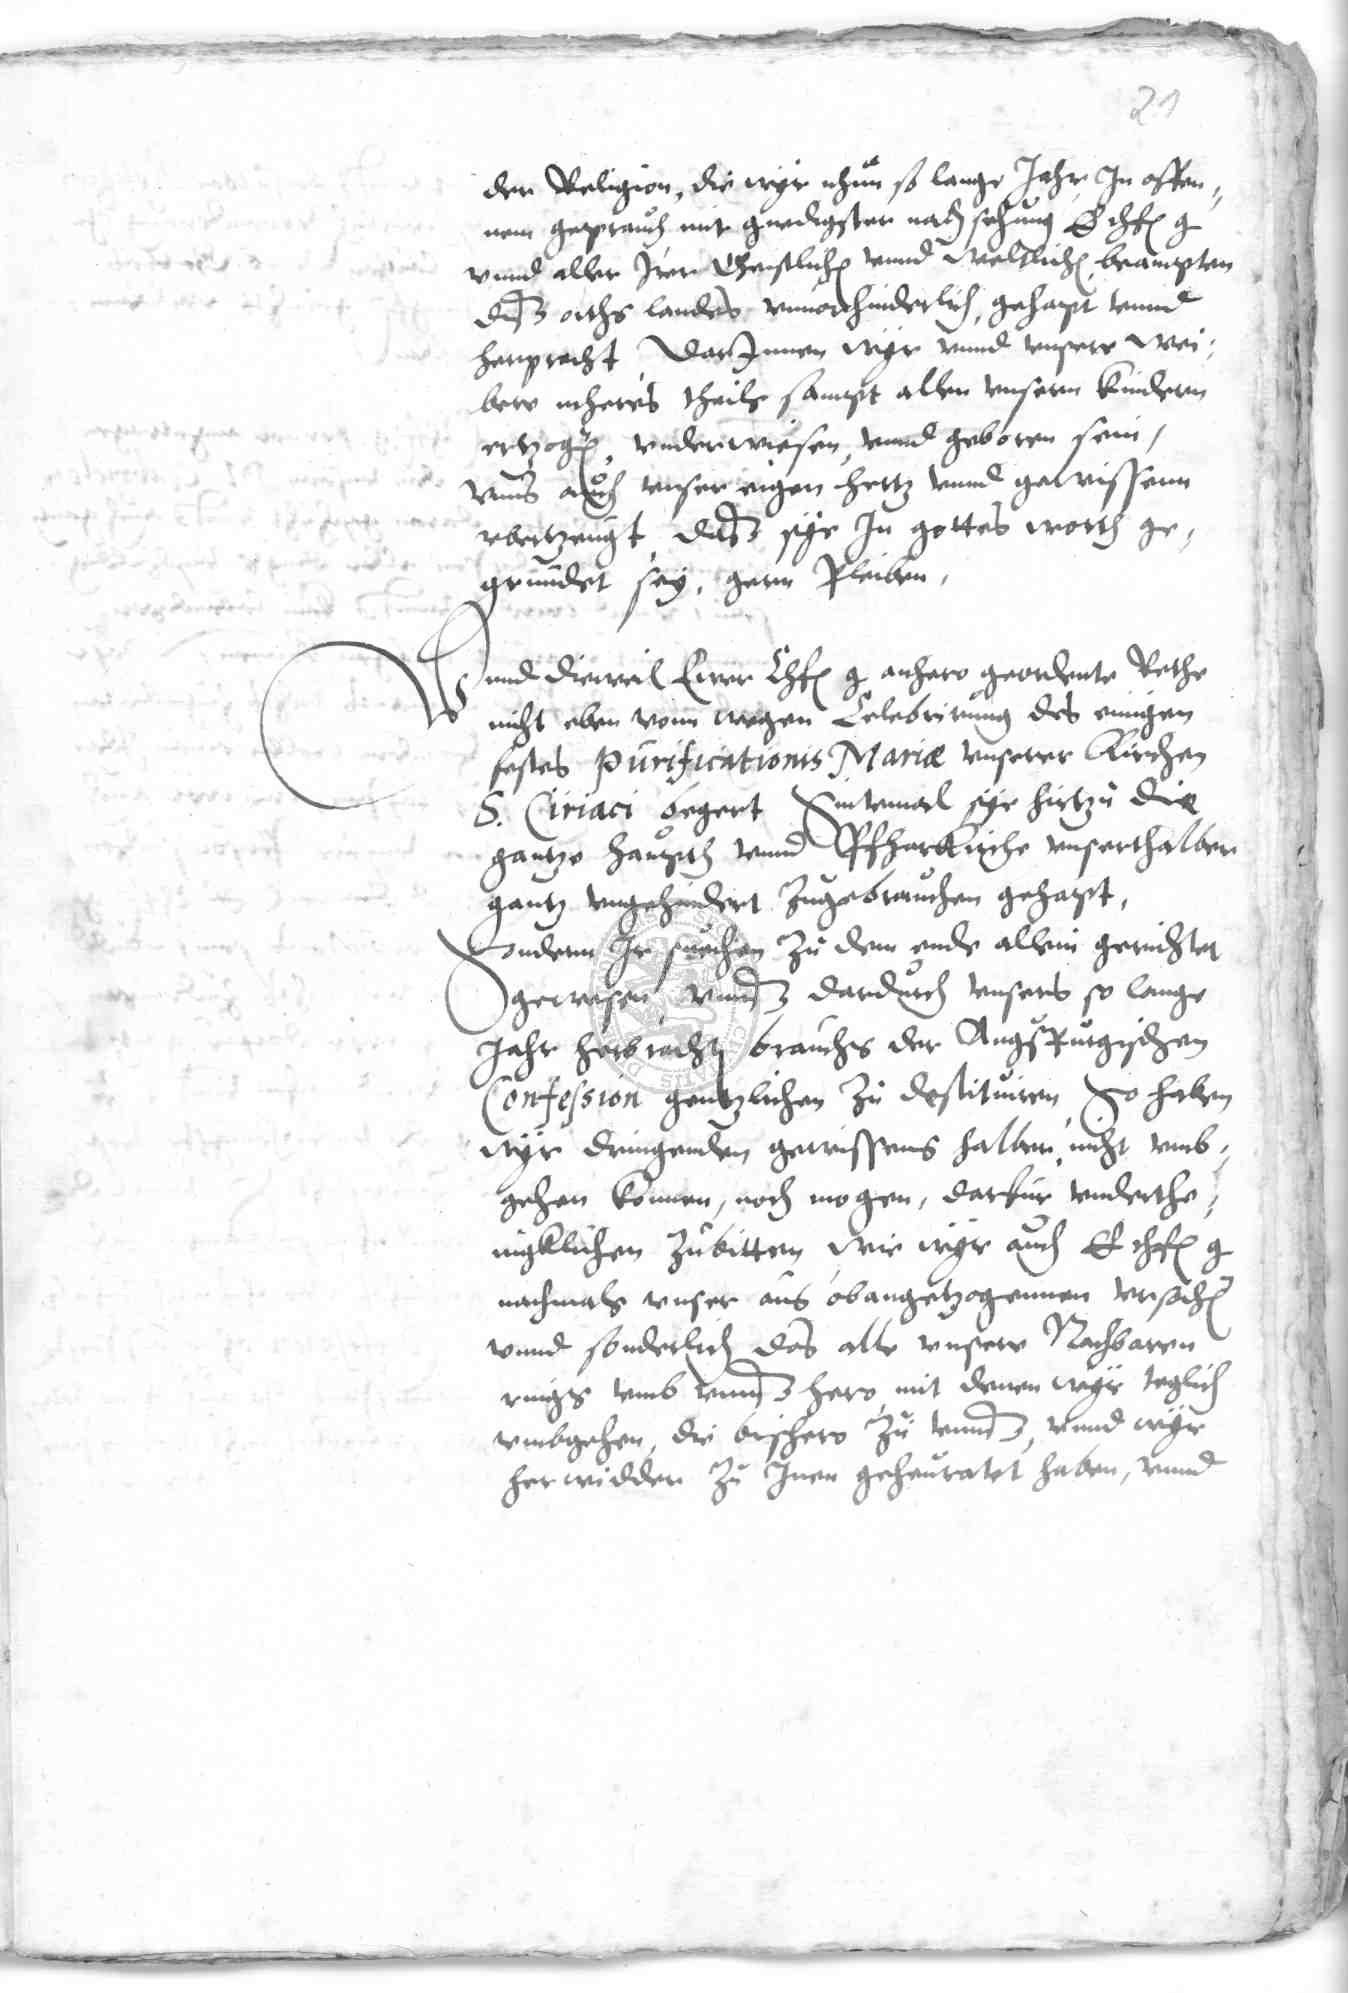 21
der Religion, die wyr nhun so lange Jahr, In offen,
nem geprauch mit gnedigster nachsehung E chf g
vnnd aller Irer Geistlichen vnnd Weltlichen beampten
diß orths landes vnuorhinderlich, gehapt vnnd
herpracht, Darinnen wyr vnnd vnsere wei,
bere mherers theils sampt allen vnsern kindern
ertzogen, vnderwiesen, vnnd geboren sein,
Vnns auch vnser eigen hertz vnnd gewissenn
vbertzeugt, daß sye In gottes worth ge,
gründet sey, gern Pleiben,
Vnnd dieweil Ewer Chf g anhero geordente Rethe
nicht eben vonn wegen Celebrirung des einigen
festes Purificationis Mariæ vnserer Kirchen
S. Ciriaci begert Sintemal sye hirtzu die
gantze haupth vnnd Pfharkirche vnserthalben
gantz vngehindert Zugebrauchen gehapt,
Sondern Ir suchen Zu dem ende allein gerichtet
gewesen, vnnß dardurch vnsers so lange
Jahr herbrachts brauchs der Augspurgischen
Confession gentzlichen Zu destituiren, So haben
wyr dringenden gewissens halben, nicht vmb,
gehen konnen, noch mogen, darfur vnderthe,
nigklichen Zubitten, wie wyr auch E chf g
nachmals vnser aus obangetzogennen vrsachen
vnnd sonderlich das alle vnsere Nachbaren
rings vmb vnnß hero, mit denen wyr teglich
vmbgehen, die bishero Zu vnnß, vnnd wyr
herwidder Zu Inen geheuratet haben, vnnd